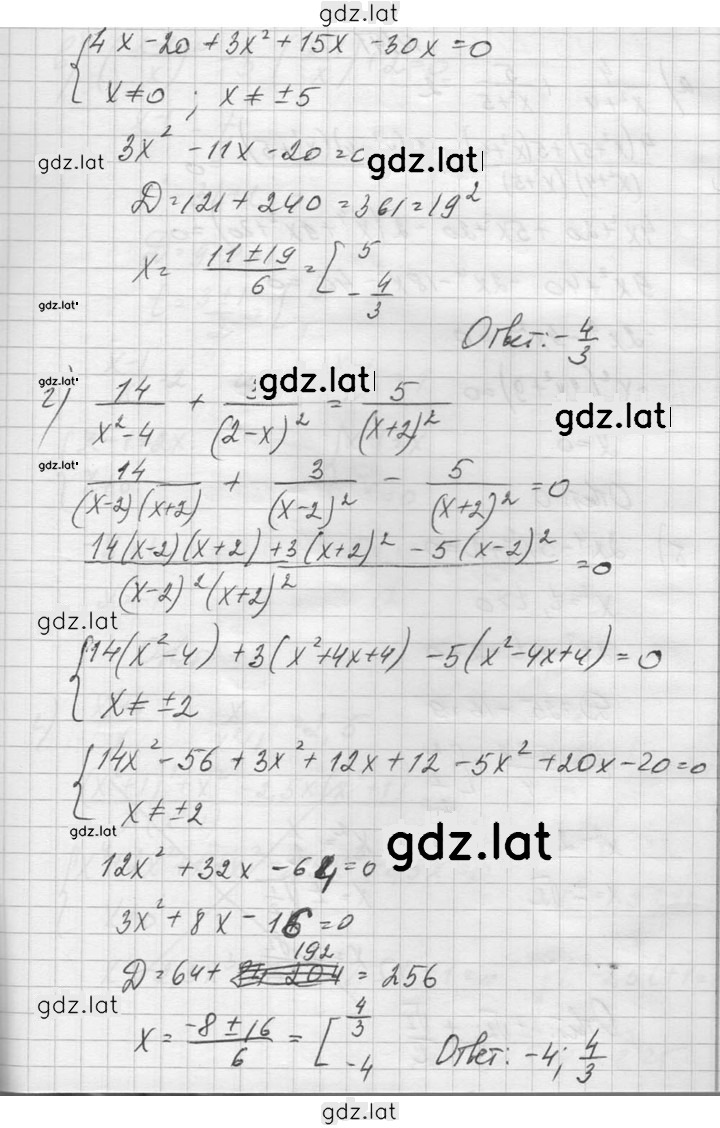 gdz.lat
{4x - 20 + 3x² + 15x - 30x = 0
x ≠ 0 ; x ≠ ±5
gdz.lat 3x² - 11x - 20 = 0 gdz.lat
D = 121 + 240 = 361 = 19²
x = (11 ± 19)/6 = [5
-4/3
gdz.lat
Ответ: -4/3
gdz.lat gdz.lat
2) 14/(x² - 4) + 3/(2 - x)² = 5/(x + 2)²
gdz.lat
gdz.lat
14/((x - 2)(x + 2)) + 3/(x - 2)² - 5/(x + 2)² = 0
(14(x - 2)(x + 2) + 3(x + 2)² - 5(x - 2)²)/((x - 2)²(x + 2)²) = 0
gdz.lat
{14(x² - 4) + 3(x² + 4x + 4) - 5(x² - 4x + 4) = 0
x ≠ ±2
{14x² - 56 + 3x² + 12x + 12 - 5x² + 20x - 20 = 0
x ≠ ±2
gdz.lat gdz.lat
12x² + 32x - 64 = 0
3x² + 8x - 16 = 0
D = 64 + 192 = 256
gdz.lat
x = (-8 ± 16)/6 = [4/3
-4
Ответ: -4; 4/3
gdz.lat